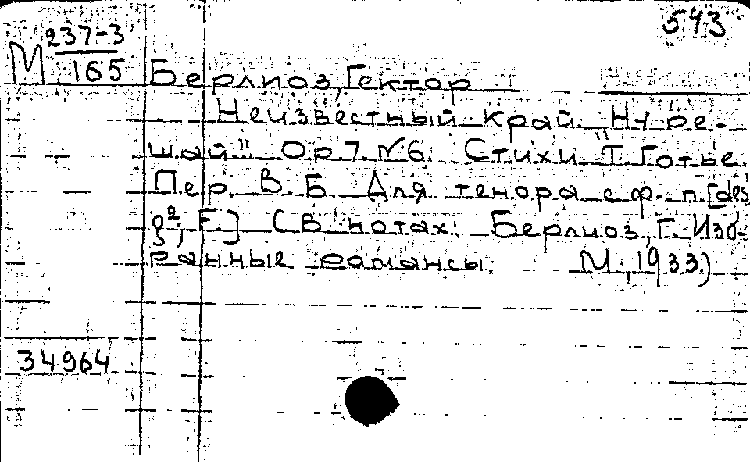 543
М 237-3
165
Берлиоз, Гектор
Неизвестный край. "Ну ре-
шай". Op. 7 №6. Стихи Т. Готье.
Пер. В. Б. Для тенора с ф.-п. [des
g², F.] (В нотах: Берлиоз, Г. Изб-
ранные романсы. М., 1933.)
34964